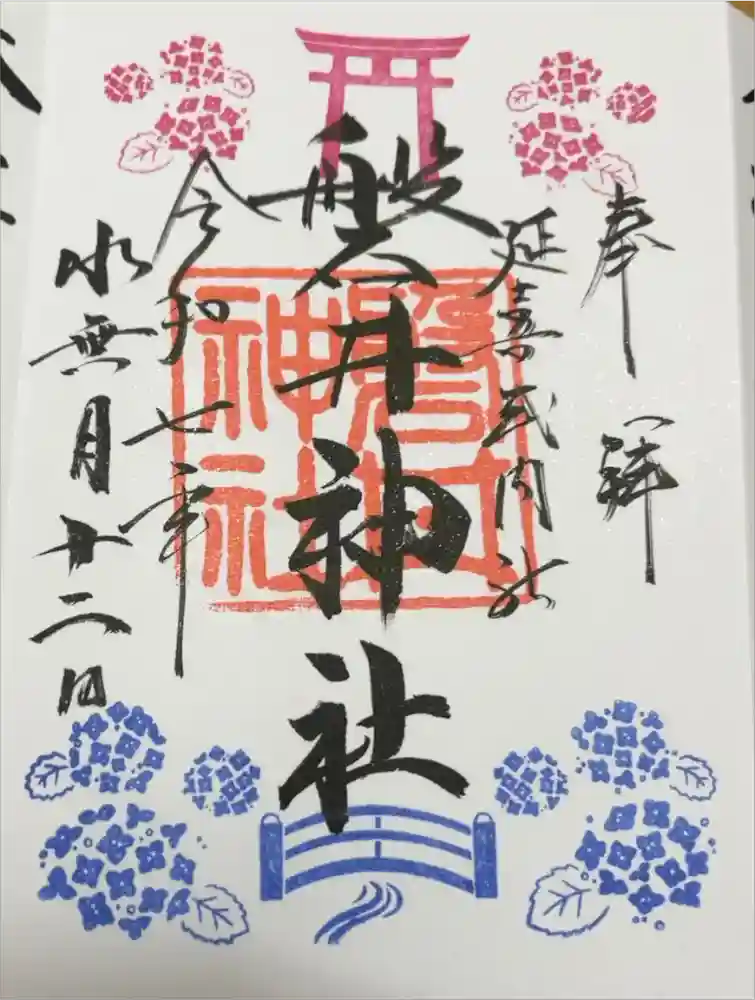 奉拝
延喜式内社
磐井神社
令和七年
水無月廿二日
磐井
神社